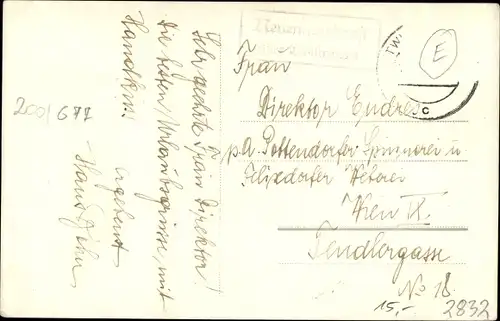 Sehr geehrte Frau Direktor!
Die besten Urlaubsgrüsse, mit
Handkuss
ergebenst
Hans
200/677
Frau
Direktor Endres
p.A. Pottendorfer Spinnerei u.
Felixdorfer Weberei
Wien IX.
Fendlergasse
No 18
15,-
2832
E